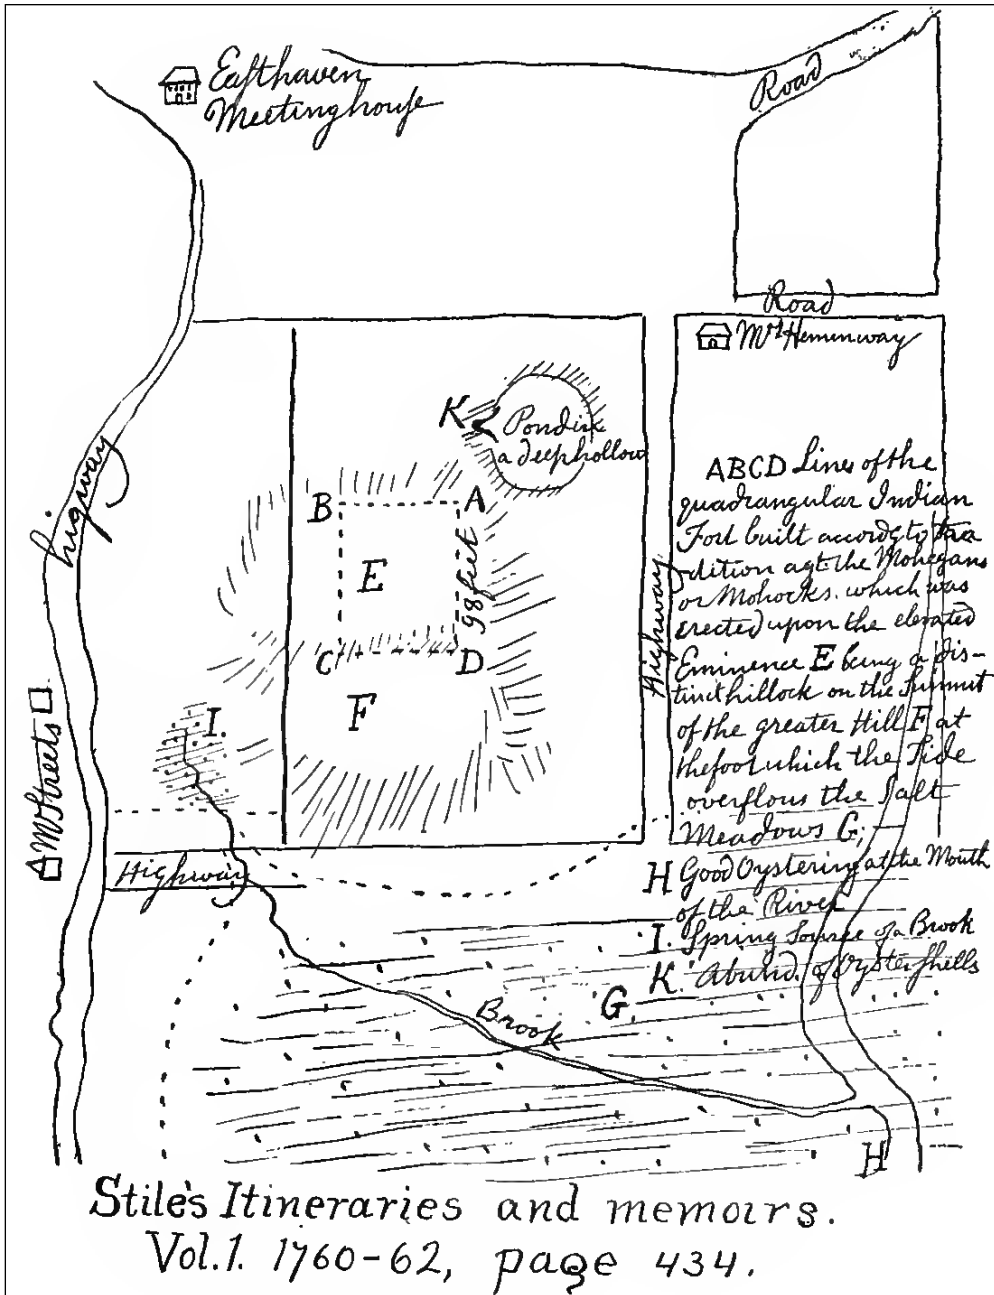 Easthaven
Meetinghouse
Road
Road
Mrs Hemenway
K
Pond in
a deep hollow
B
A
E
98 feet
C
D
F
I.
higway
Mr Streets
Highway
Highway
ABCD Lines of the
quadrangular Indian
Fort built accordg to tra
dition agt the Mohegans
or Mohocks. which was
erected upon the elevated
Eminence E being a dis-
tinct hillock on the Summit
of the greater Hill F at
the foot which the Tide
overflous the Salt
Meadows G;
H Good Oystering at the Mouth
of the River
I. Spring Source of a Brook
K. Abund. of Oystershells
G.
Brook
H
Stile's Itineraries and memoirs.
Vol.1. 1760-62, page 434.